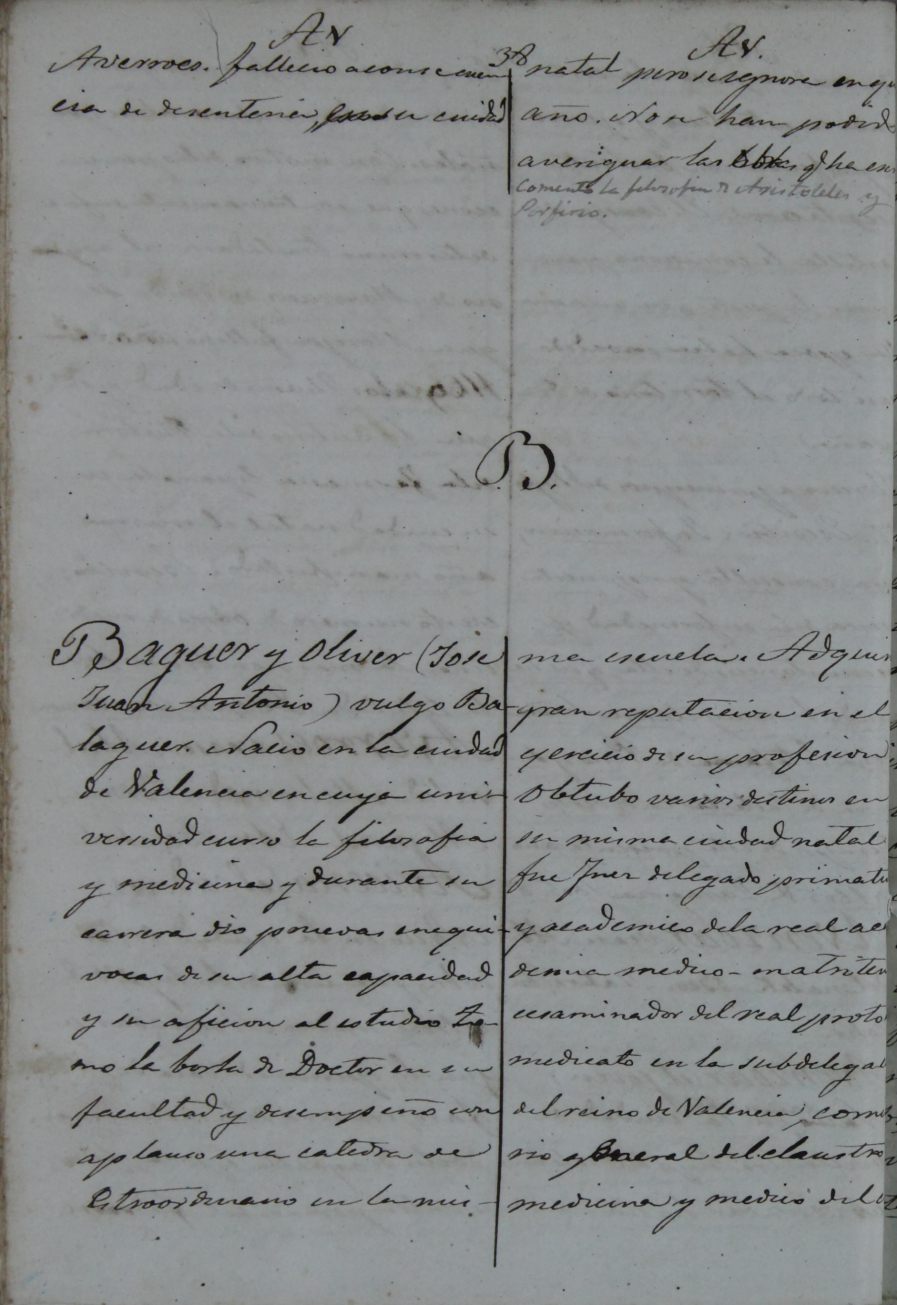 AV
38
AV.
Averroes. fallecio a consecuen
cia de disenteria, en su ciudad
natal pero se ignora en qu
año. No se han podid
averiguar las obras q ha es
Comentó la filosofia de Aristoteles y
Porfirio.
B.
Baguer y Oliver (Jose
Juan Antonio) vulgo Ba-
laguer. Nacio en la ciudad
de Valencia en cuya uni-
versidad curso la filosofia
y medicina y durante su
carrera dio pruevas inequi-
vocas de su alta capacidad
y su aficion al estudio To-
mo la borla de Doctor en su
facultad y desempeñó con
aplauso una catedra de
Estraordinario en la mis-
ma escuela. Adquir
gran reputacion en el
ejercicio de su profesion
Obtubo varios destinos en
su misma ciudad natal
fue Juez delegado, primatu
y academico de la real aca
demia medico-matriten
ecsaminador del real proto
medicato en la subdelega
del reino de Valencia, comi
rio general del claustro
medicina y medico del